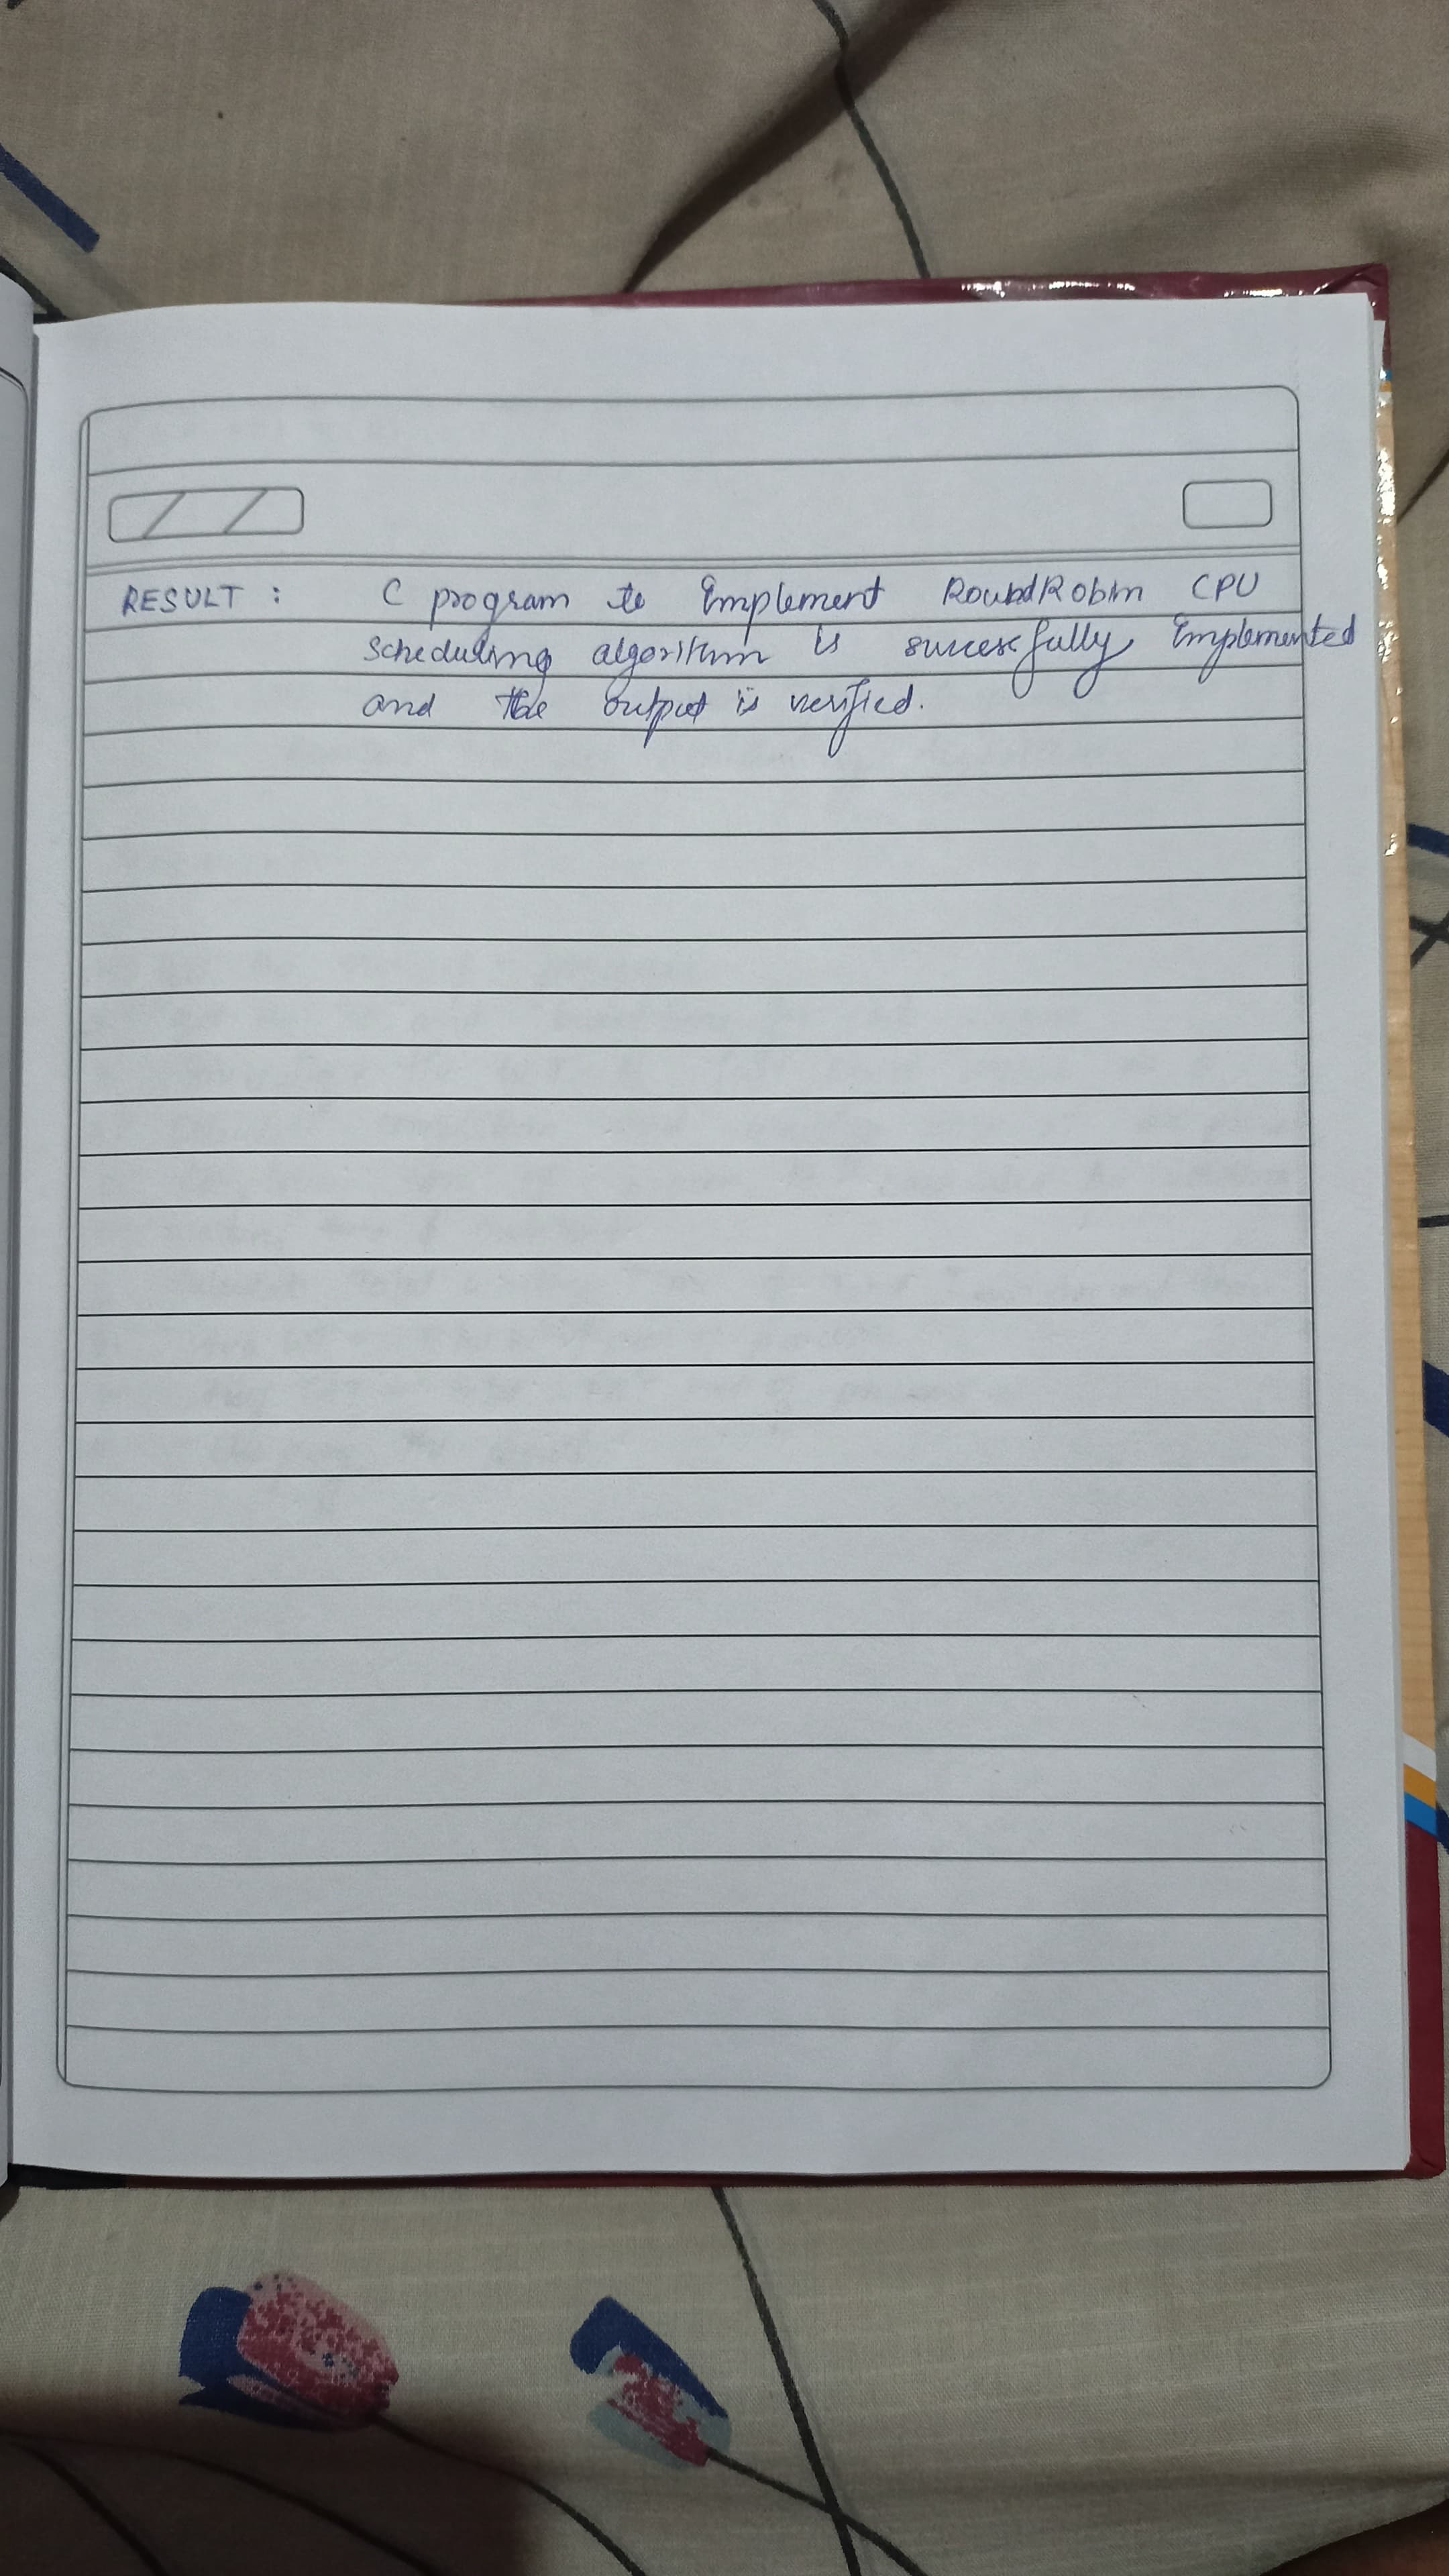 RESULT : C program to Implement RoundRobin CPU
scheduling algorithm is succesfully Implemented
and the output is verified.